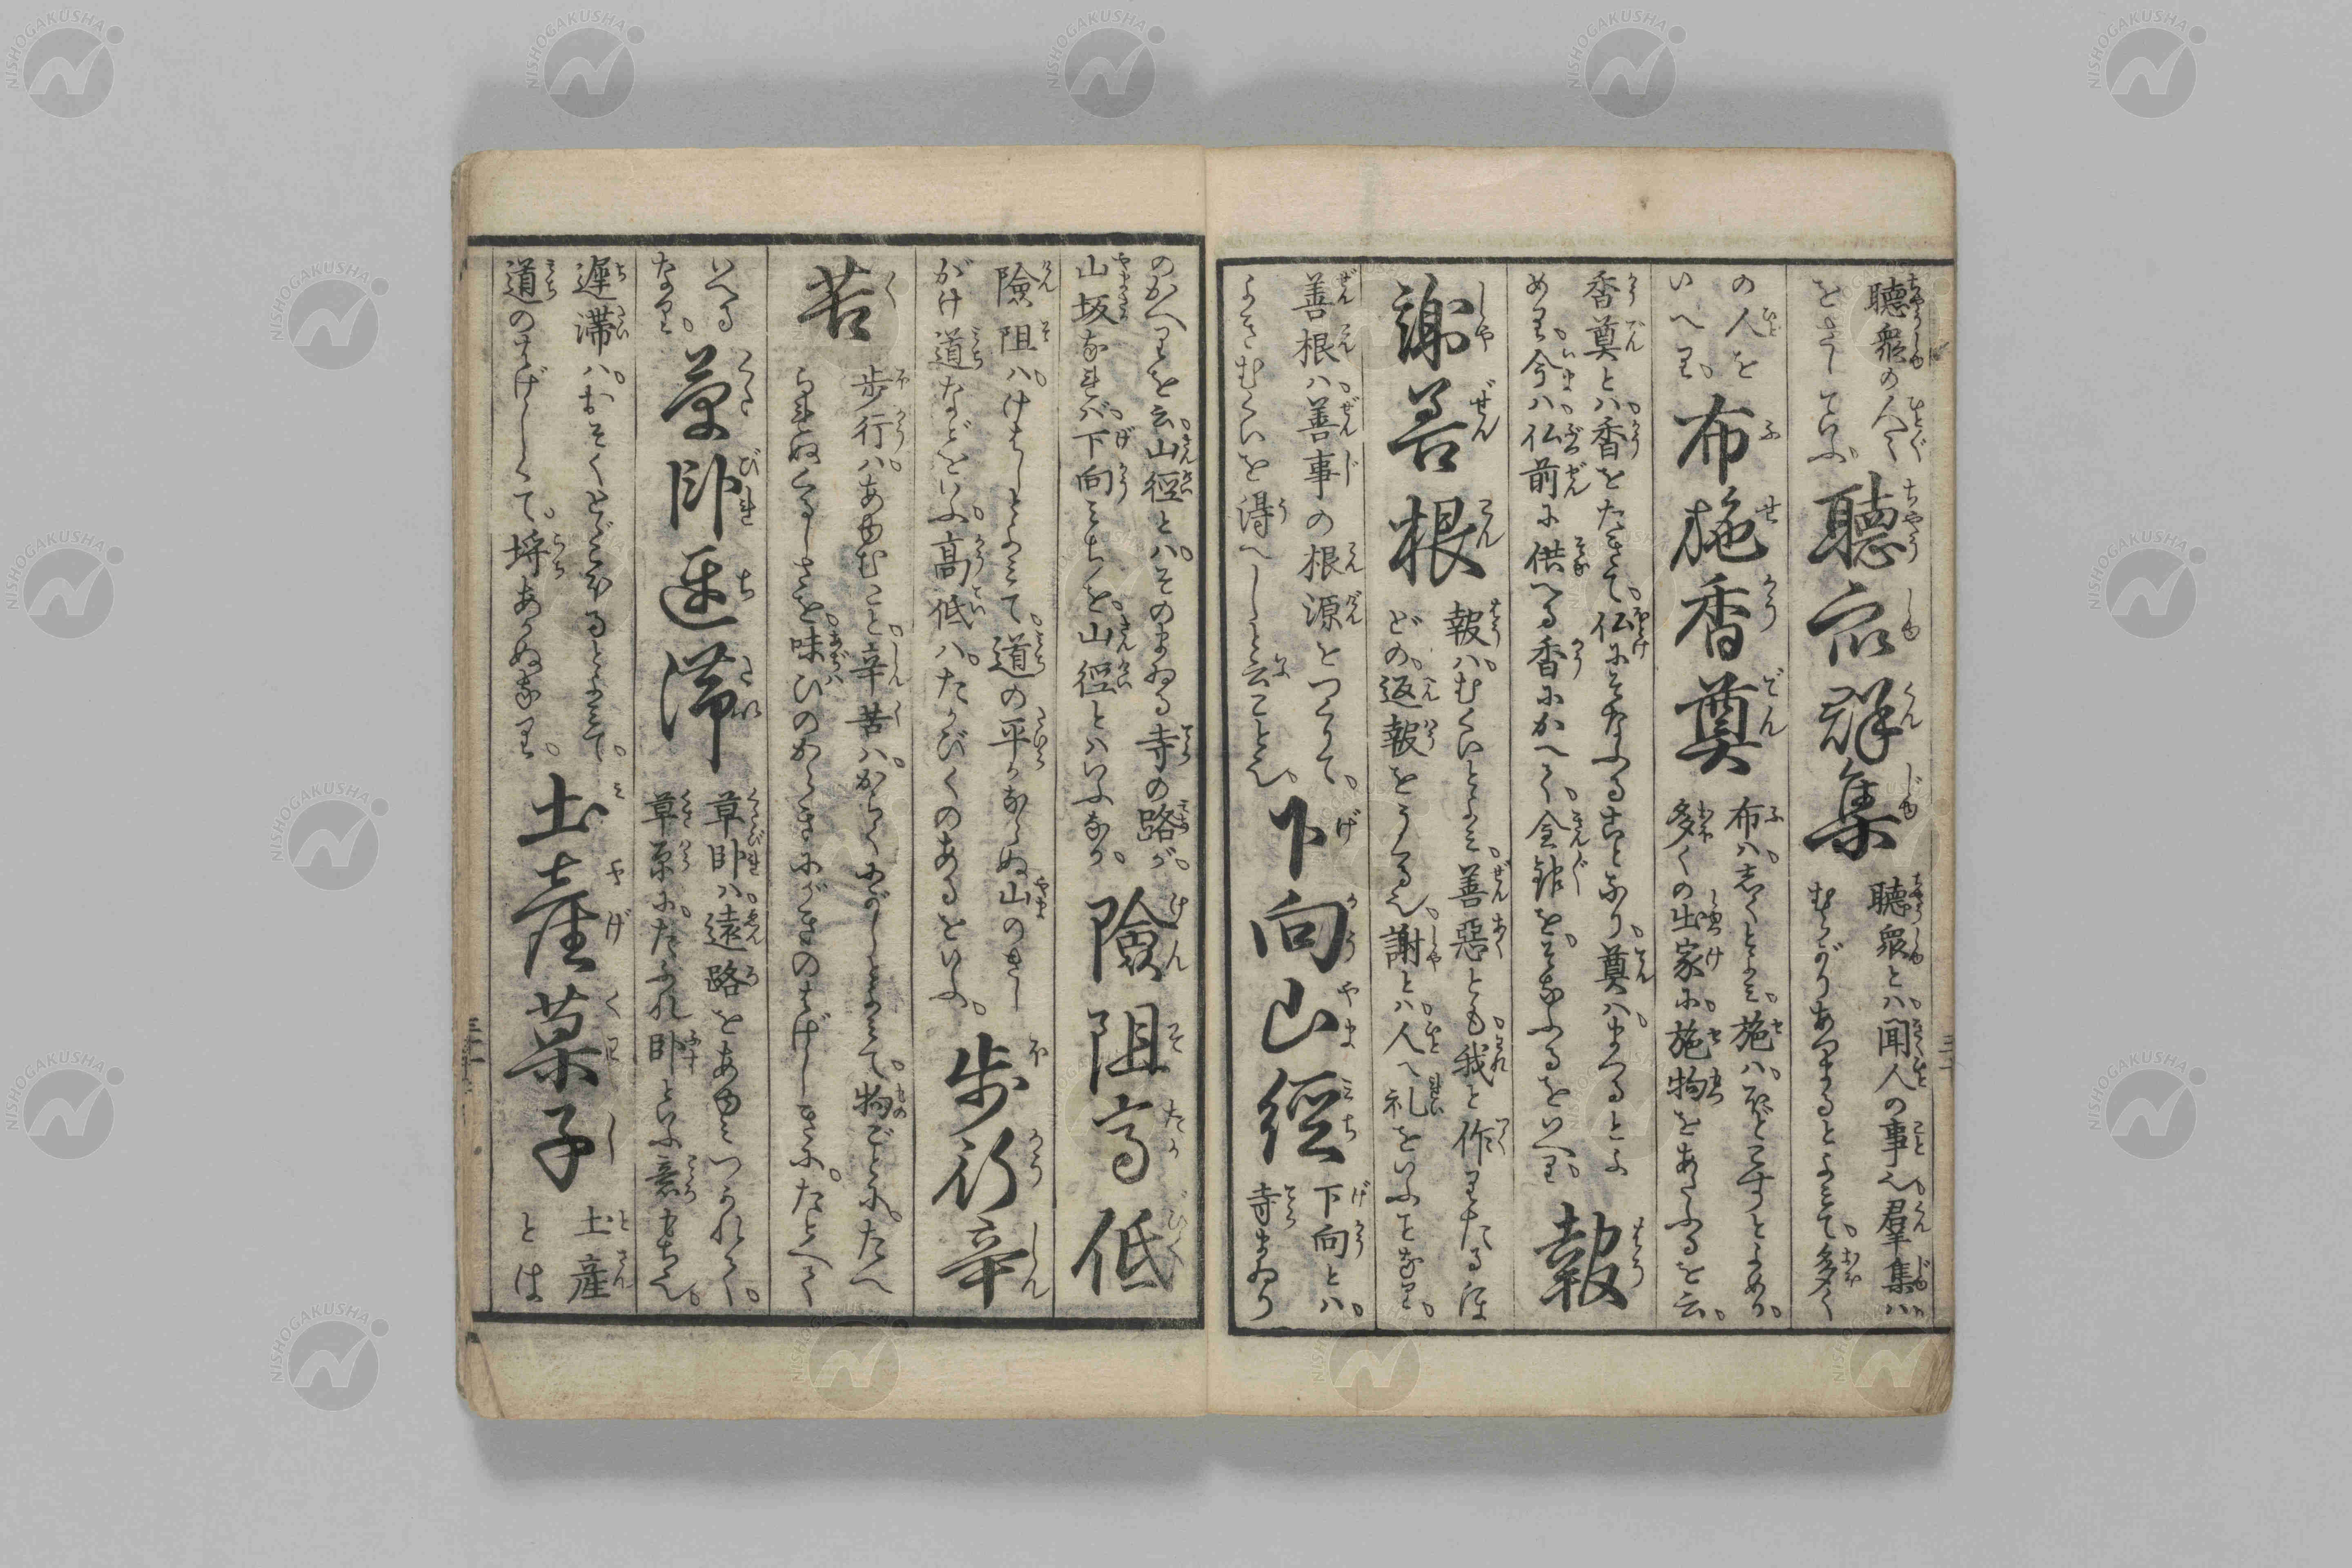 聴衆の人々
をさしていふ
聽衆群集
聴衆とハ。聞人の事也。羣集ハ
むらがりあつまるとよミて。多く
の人を
いへり。
布施香奠
布ハ。志くとよミ。施ハ。ほどこすとよめり。
多くの出家に。施物をあたふるを云。
香奠とハ。香をたきて。仏にそなふることなり。奠ハ。まつるとよ
めり。今ハ。仏前に供へる香にかへて。金銀を。そなふるをいへり。
報
謝善根
報ハ。むくいとよミ。善惡とも。我と作りたるほ
どの。返報をうくる也。謝とハ。人へ礼をいふことなり。
善根ハ。善事の根源をつくりて。
よきむくいを得べしと云こと也。
下向山径
下向とハ。
寺まゐり
のかへりを云。山徑とハ。そのまゐる寺の路が。
山坂なれバ。下向ミちを。山徑とハいふなり。
險阻高低
險阻ハ。けはしとよミて。道の平かならぬ山のきし
がけ道などをいふ。高低ハ。たかびくのあるをいふ。
歩行辛
苦
歩行ハ。あゆむこと。辛苦ハ。からくにがしとよミて。物ごとに。たへ
られぬくるしさを。味ひのからきにがきのはげしきに。たとへて
いへる
なり。
草臥遅滞
草臥ハ。遠路をあゆミつかれて。
草原に。たふれ臥といふ意もち也。
遲滯ハ。おそくとどこほるとよミて。
道のはげしくて。埒あかぬなり。
土産菓子
土産
とは
三十一